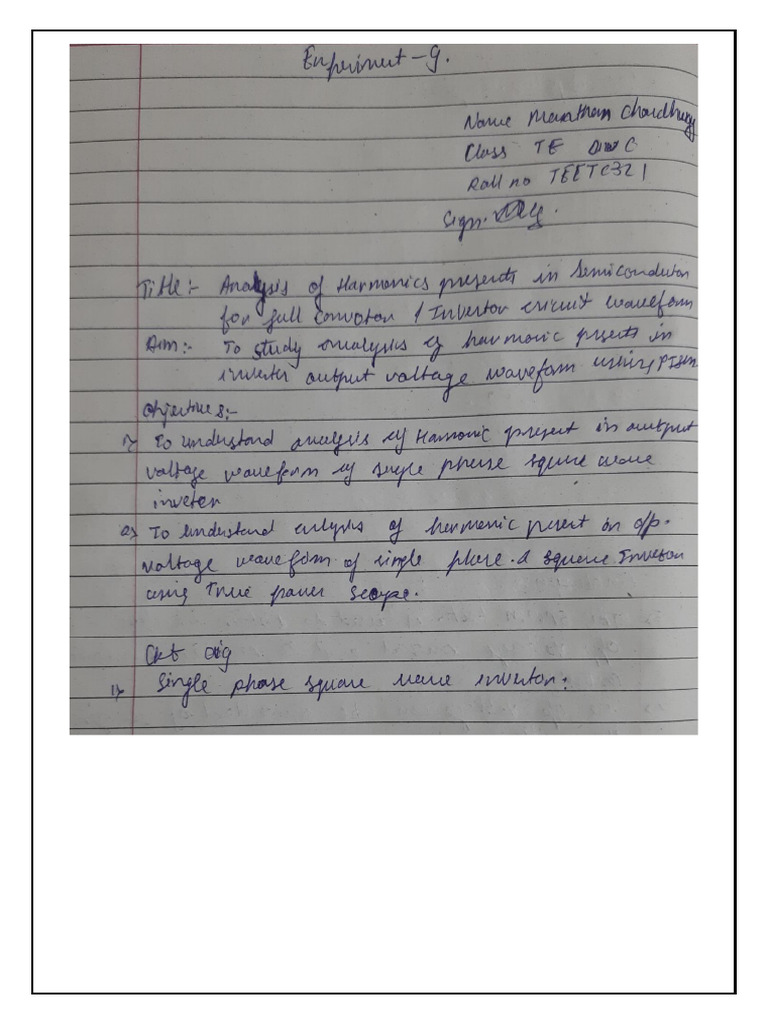 Experiment - 9.
Name Manthan Chaudhary
Class TE Div C
Roll no TEETC321
Sign.
Title:- Analysis of Harmonics presents in Semiconductor
for full convotor / Invertor circuit waveform
Aim:- To study analysis of harmonic presents in
inverter output voltage waveform using
Objectives:-
1) To understand analysis of Harmonic present in output
voltage waveform of single phase square wave
inveter
2) To understand anlysis of harmonic present in o/p.
voltage waveform of single phase . square Invetor
using True power Scope.
Ckt dig
1) Single phase square wave invertor: